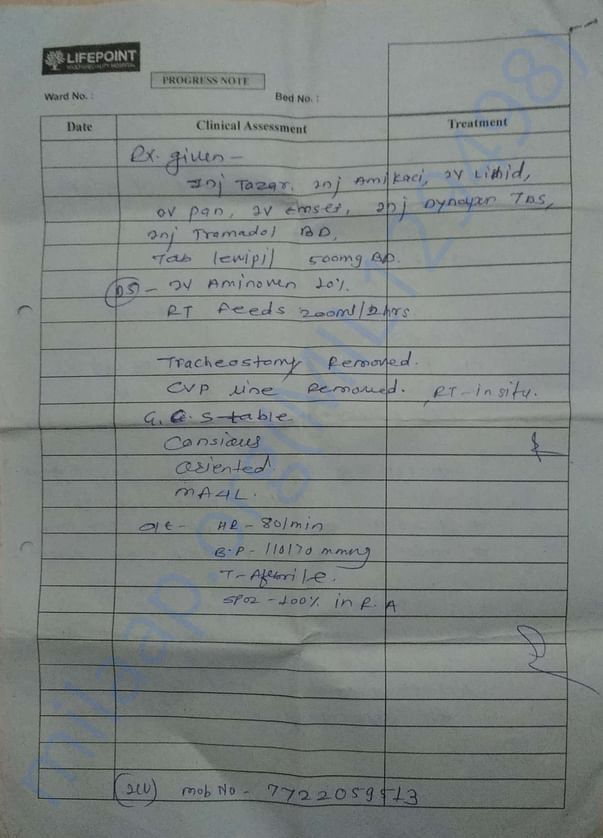 LIFEPOINT
MULTISPECIALITY HOSPITAL
PROGRESS NOTE
Ward No. :
Bed No. :
Date Clinical Assessment Treatment
Rx. given -
Inj Tazar, Inj Amikaci, IV
IV pan, IV emset, Inj Dynapar TDS,
Inj Tramadol BD,
Tab levipil 500mg BD.
IV Aminoven 10%.
RT feeds 200ml/2hrs
Tracheostomy Removed.
CVP line Removed. RT-insitu.
Stable
Consious
oriented.
MA4L.
O/E - HR - 80/min
B.P - 110/70 mmHg
T - Afebrile.
SPO2 - 100% in R.A
mob No - 7722059513
milaap.org